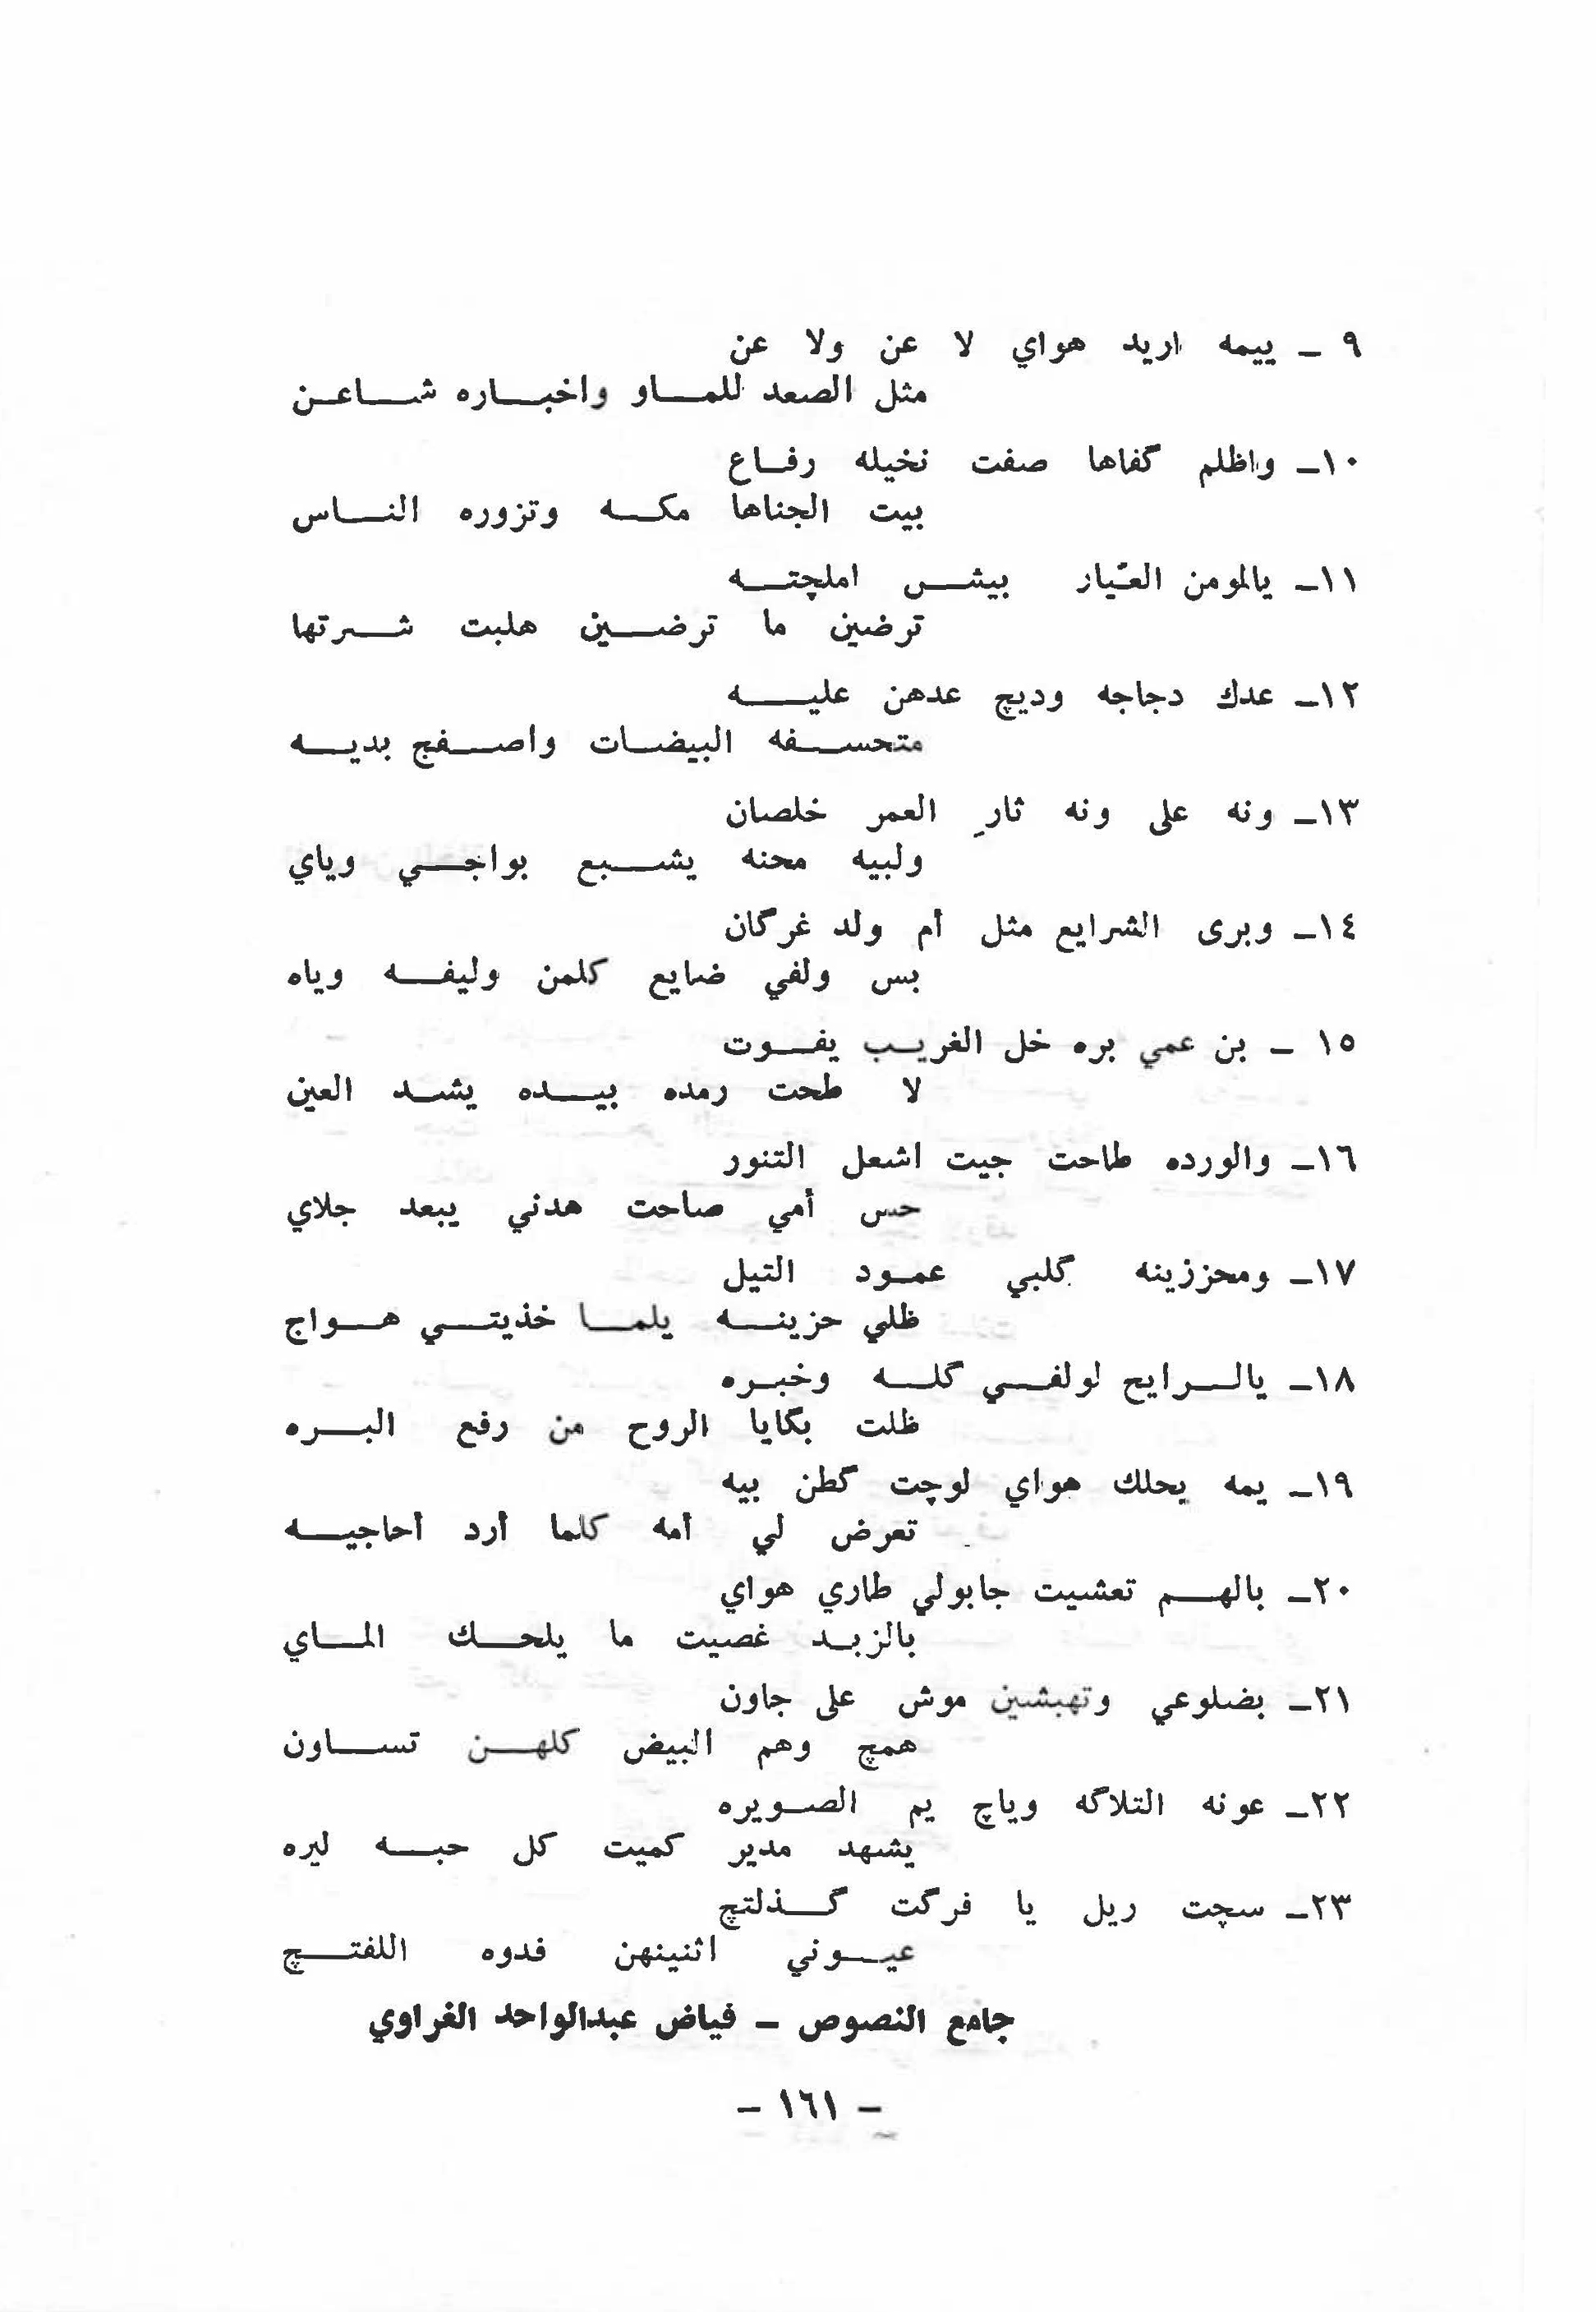 ٩ ــ ييمه اريد هواي لا عن ولا عن
مثل الصعد للماو واخباره شاعن
١٠ــ واظلم گفاها صفت نخيله رفاع
بيت الجناها مكه وتزوره الناس
١١ــ يالمومن العيّار بيش املچته
ترضين ما ترضين هلبت شرتها
١٢ــ عدك دجاجه وديچ عدهن عليه
متحسفه البيضات واصفج بديه
١٣ــ ونه على ونه ثارِ العمر خلصان
ولبيه محنه يشبع بواچي وياي
١٤ــ وبرى الشرايع مثل أم ولد غرگان
بس ولفي ضايع كلمن وليفه وياه
١٥ ــ بن عمي بره خل الغريب يفوت
لا طحت رمده بيده يشد العين
١٦ــ والورده طاحت جيت اشعل التنور
حس أمي صاحت هدني يبعد جلاي
١٧ــ ومحززينه گلبي عمود التيل
ظلي حزينه يلما خذيتي هواج
١٨ــ يالرايح لولفي گله وخبره
ظلت بگايا الروح من رفع البره
١٩ــ يمه يحلك هواي لوچت گطن بيه
تعرض لي أمه كلما أرد أحاجيه
٢٠ــ بالهم تعشيت جابولي طاري هواي
بالزبد غصيت ما يلحك الماي
٢١ــ بضلوعي وتهبشين موش على جاون
همچ وهم البيض كلهن تساون
٢٢ــ عونه التلاگه وياچ يم الصويره
يشهد مدير كميت كل حبه ليره
٢٣ــ سچت ريل يا فرگت گذلتچ
عيوني اثنينهن فدوه اللفتچ
جامع النصوص – فياض عبدالواحد الغراوي
– ١٦١ –